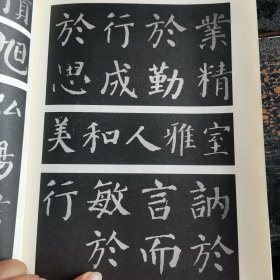 業精
於勤
行成
於思
室雅人和美
訥於
言而
敏於
行
旭